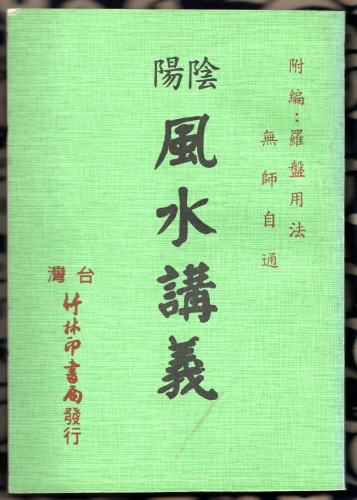 附編：羅盤用法
無師自通
陰陽
風水講義
台灣
竹林印書局發行